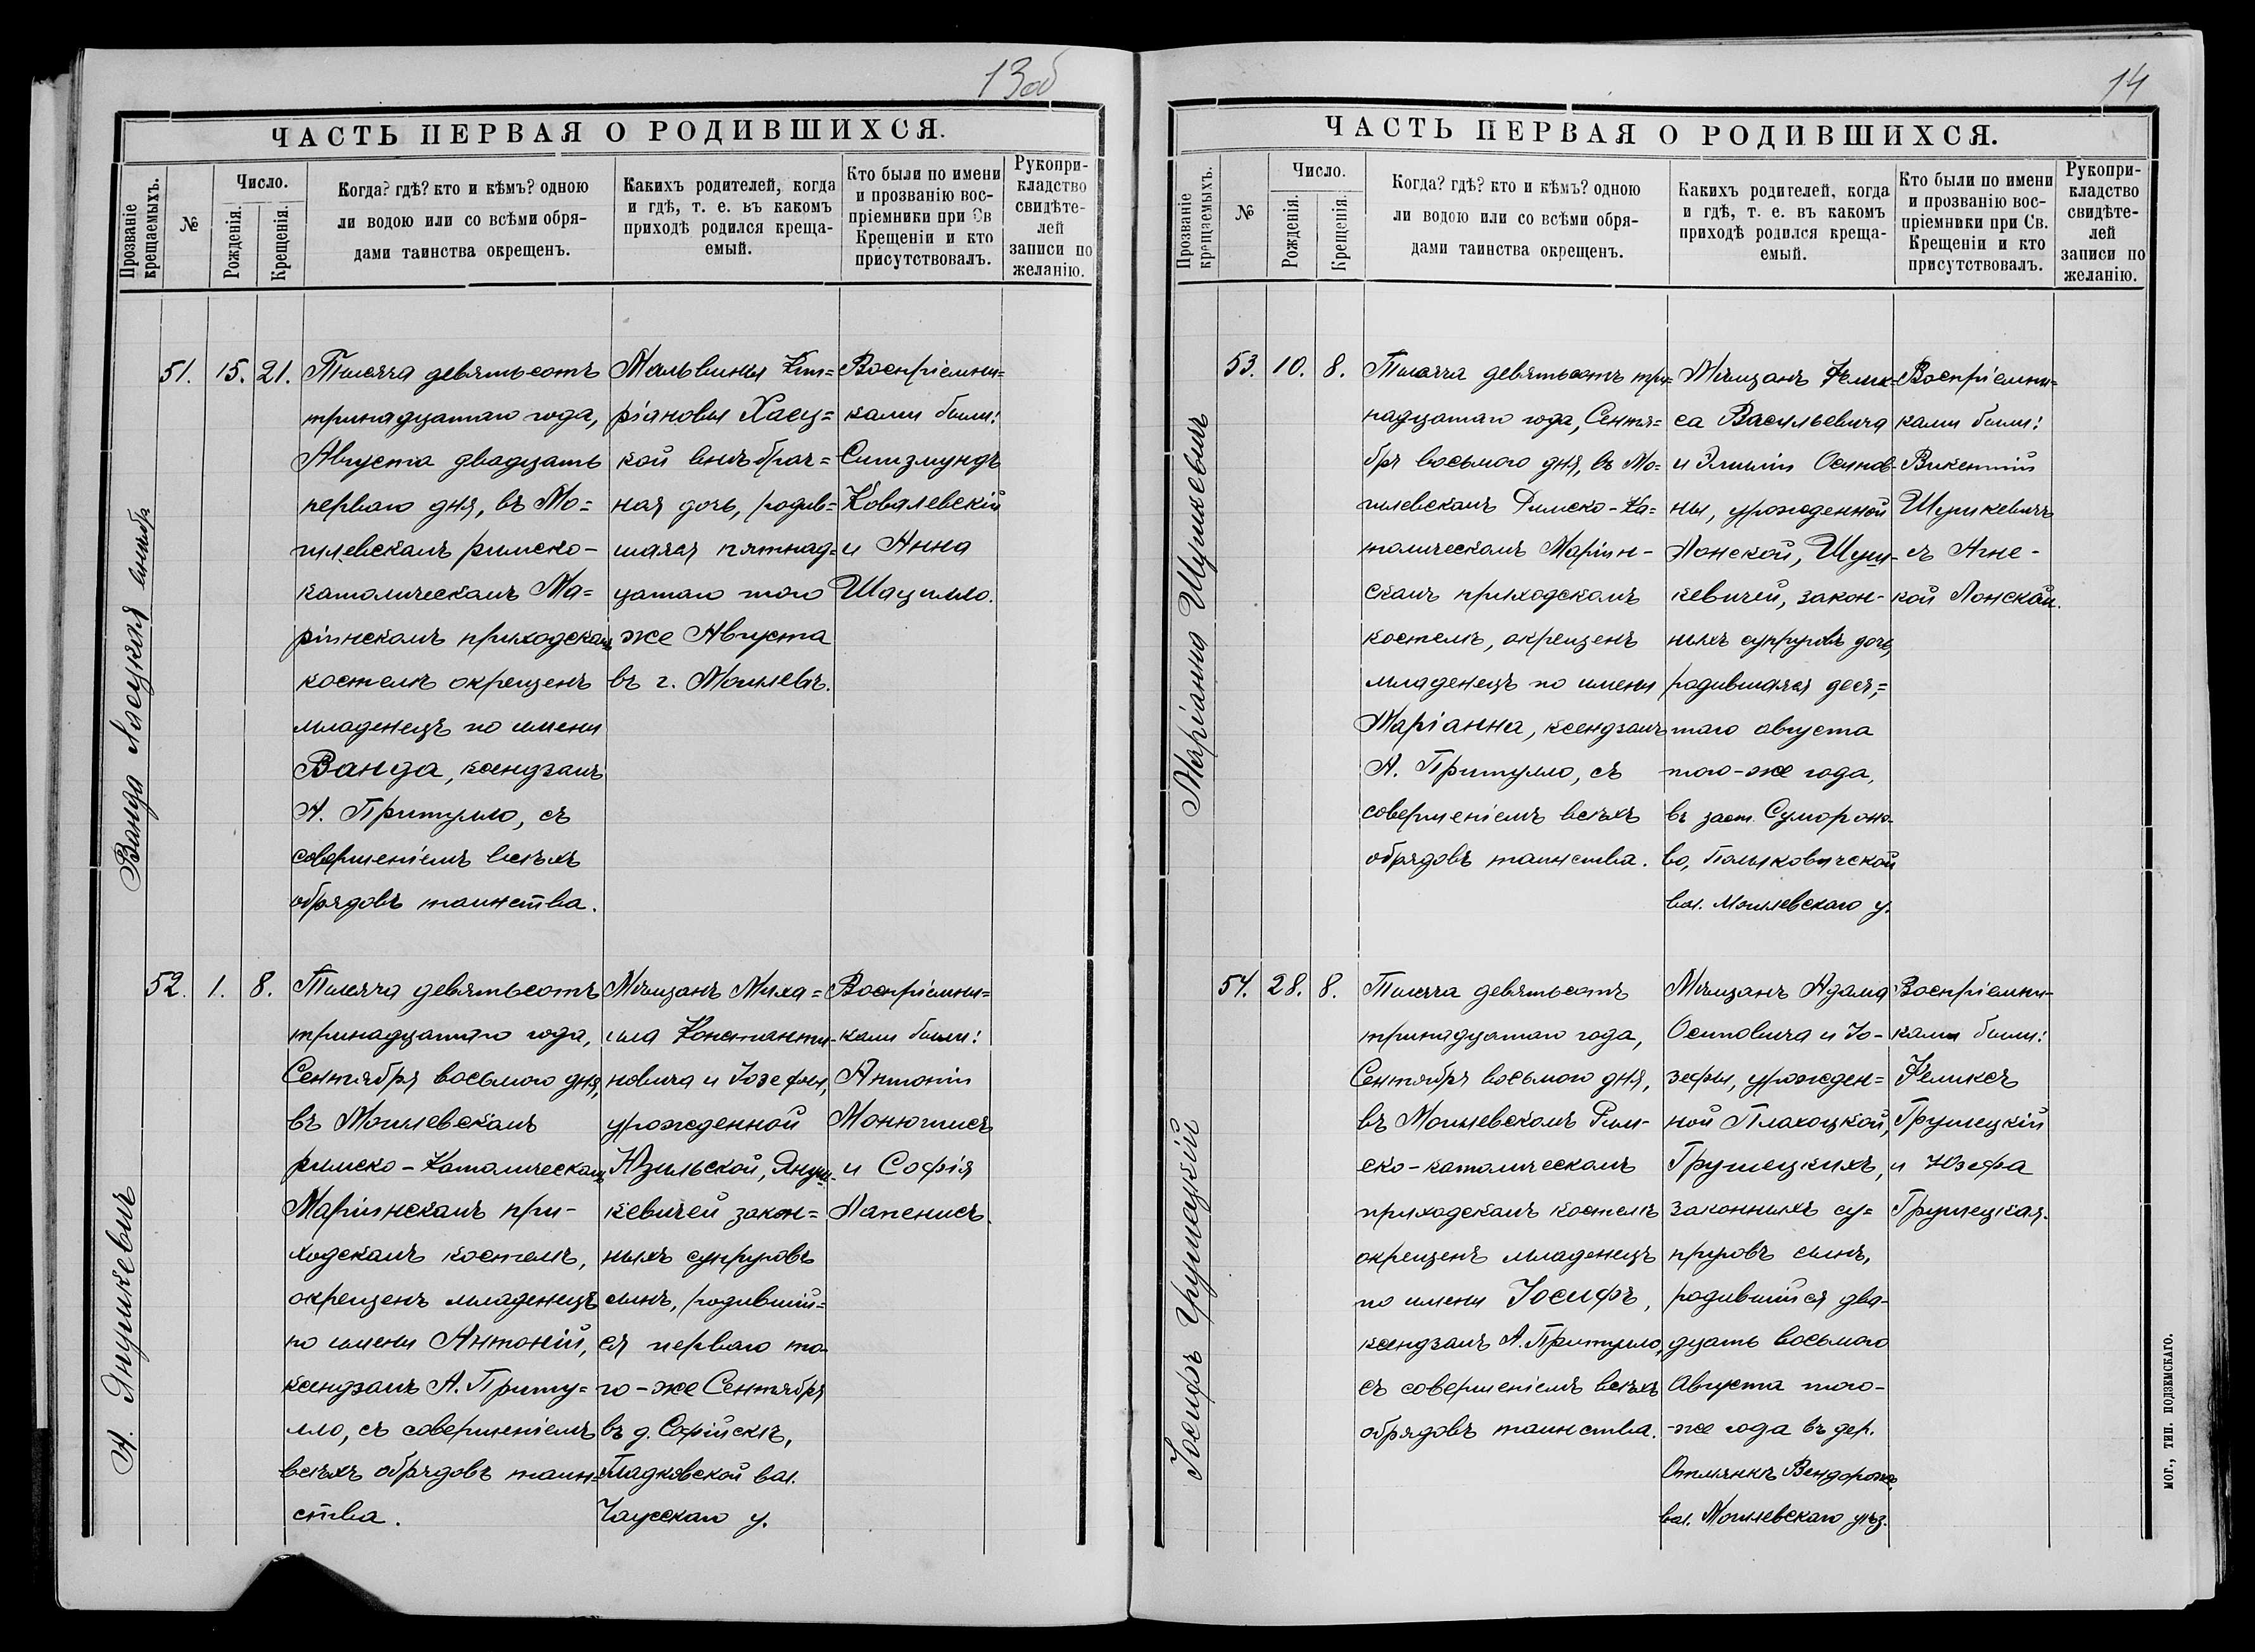 13об
ЧАСТЬ ПЕРВАЯ О РОДИВШИХСЯ.
Прозваніе крещаемыхъ.
№
Число.
Рожденія.
Крещенія.
Когда? гдѣ? кто и кѣмъ? одною
ли водою или со всѣми обря-
дами таинства окрещенъ.
Какихъ родителей, когда
и гдѣ, т. е. въ какомъ
приходѣ родился креща-
емый.
Кто были по имени
и прозванію вос-
пріемники при Св
Крещеніи и кто
присутствовалъ.
Рукопри-
кладство
свидѣте-
лей
записи по
желанію.
Ванда
51.
15.
21.
Тысяча девятьсотъ
тринадцатаго года,
Августа двадцать
перваго дня, въ Мо=
гилевскомъ римско-
католическомъ Ма=
ріинскомъ приходскомъ
костелѣ окрещенъ
младенецъ по имени
Ванда, ксендзомъ
А. Притулло, съ
совершеніемъ всѣхъ
обрядовъ таинства.
Мальвины Кип=
ріановы Хаец=
кой внѣбрач=
ная дочь, родив=
шаяся пятнад=
цатаго того
же Августа
въ г. Могилевѣ.
Воспріемни=
ками были:
Сигизмундъ
Ковалевскій
и Анна
Шацилло.
А. Янушкевичъ
52.
1.
8.
Тысяча девятьсотъ
тринадцатаго года,
Сентября восьмого дня,
въ Могилевскомъ
римско-Католическомъ
Маріинскомъ при-
ходскомъ костелѣ,
окрещенъ младенецъ
по имени Антоній,
ксендзомъ А. Приту=
лло, съ совершеніемъ
всѣхъ обрядовъ таин=
ства.
Мѣщанъ Миха=
ила Константи-
новича и Іозефы,
урожденной
Юзильской, Януш-
кевичей закон=
ныхъ супруговъ
сынъ, родившій=
ся перваго то-
го-же Сентября
въ д. Софійскѣ,
вол.
Чаусскаго у.
Воспріемни=
ками были:
Антоній
Монюшисъ
и Софія
Лапенисъ.
14
ЧАСТЬ ПЕРВАЯ О РОДИВШИХСЯ.
Прозваніе крещаемыхъ.
№
Число.
Рожденія.
Крещенія.
Когда? гдѣ? кто и кѣмъ? одною
ли водою или со всѣми обря-
дами таинства окрещенъ.
Какихъ родителей, когда
и гдѣ, т. е. въ какомъ
приходѣ родился креща-
емый.
Кто были по имени
и прозванію вос-
пріемники при Св.
Крещеніи и кто
присутствовалъ.
Рукопри-
кладство
свидѣте-
лей
записи по
желанію.
Маріанна Шушкевичъ
53.
10.
8.
Тысяча девятьсотъ три=
надцатаго года, Сентя=
бря восьмого дня, въ Мо-
гилевскомъ Римско-Ка=
толическомъ Маріин-
скомъ приходскомъ
костелѣ, окрещенъ
младенецъ по имени
Маріанна, ксендзомъ
А. Притулло, съ
совершеніемъ всѣхъ
обрядовъ таинства.
Мѣщанъ Фелик-
са Васильевича
и Эмиліи Осипов-
ны, урожденной
Лонской, Шуш-
кевичей, закон-
ныхъ супруговъ дочь,
родившаяся деся=
таго августа
того-же года,
въ заст. Сумороно-
во, Полыковичской
вол. Могилевскаго у.
Воспріемни=
ками были:
Викентій
Шушкевичъ
съ Агне-
кой Лонской.
Іосифъ Грушецкій
54.
28.
8.
Тысяча девятьсотъ
тринадцатаго года,
Сентября восьмого дня,
въ Могилевскомъ Рим-
ско-католическомъ
приходскомъ костелѣ
окрещенъ младенецъ
по имени Іосифъ,
ксендзомъ А. Притулло,
съ совершеніемъ всѣхъ
обрядовъ таинства.
Мѣщанъ Адама
Осиповича и Іо-
зефы, урожден=
ной Плахоцкой,
Грушецкихъ,
законныхъ су=
пруговъ сынъ,
родившійся два-
дцать восьмого
Августа того-
-же года въ дер.
вол. Могилевскаго уѣз.
Воспріемни-
ками были:
Феликсъ
Грушецкій
и Юзефа
Грушецкая.
МОГ., ТИП. ПОДЗЕМСКАГО.